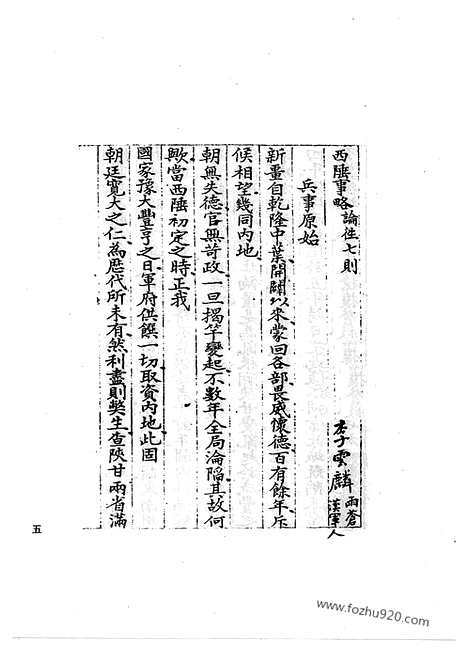 西陲事略論往七則
李雲麟 雨蒼 漢軍人
兵事原始
新疆自乾隆中葉開闢以來蒙回各部畏威懷德百有餘年斥
候相望幾同内地
朝無失德官無苛政一旦揭竿變起不數年全局淪陷其故何
歟當西陲初定之時正我
國家豫大豐亨之日軍府供饌一切取資内地此固
朝廷寬大之仁為歷代所未有然利盡則獘生查陝甘兩省滿
五
www.fozhu920.com